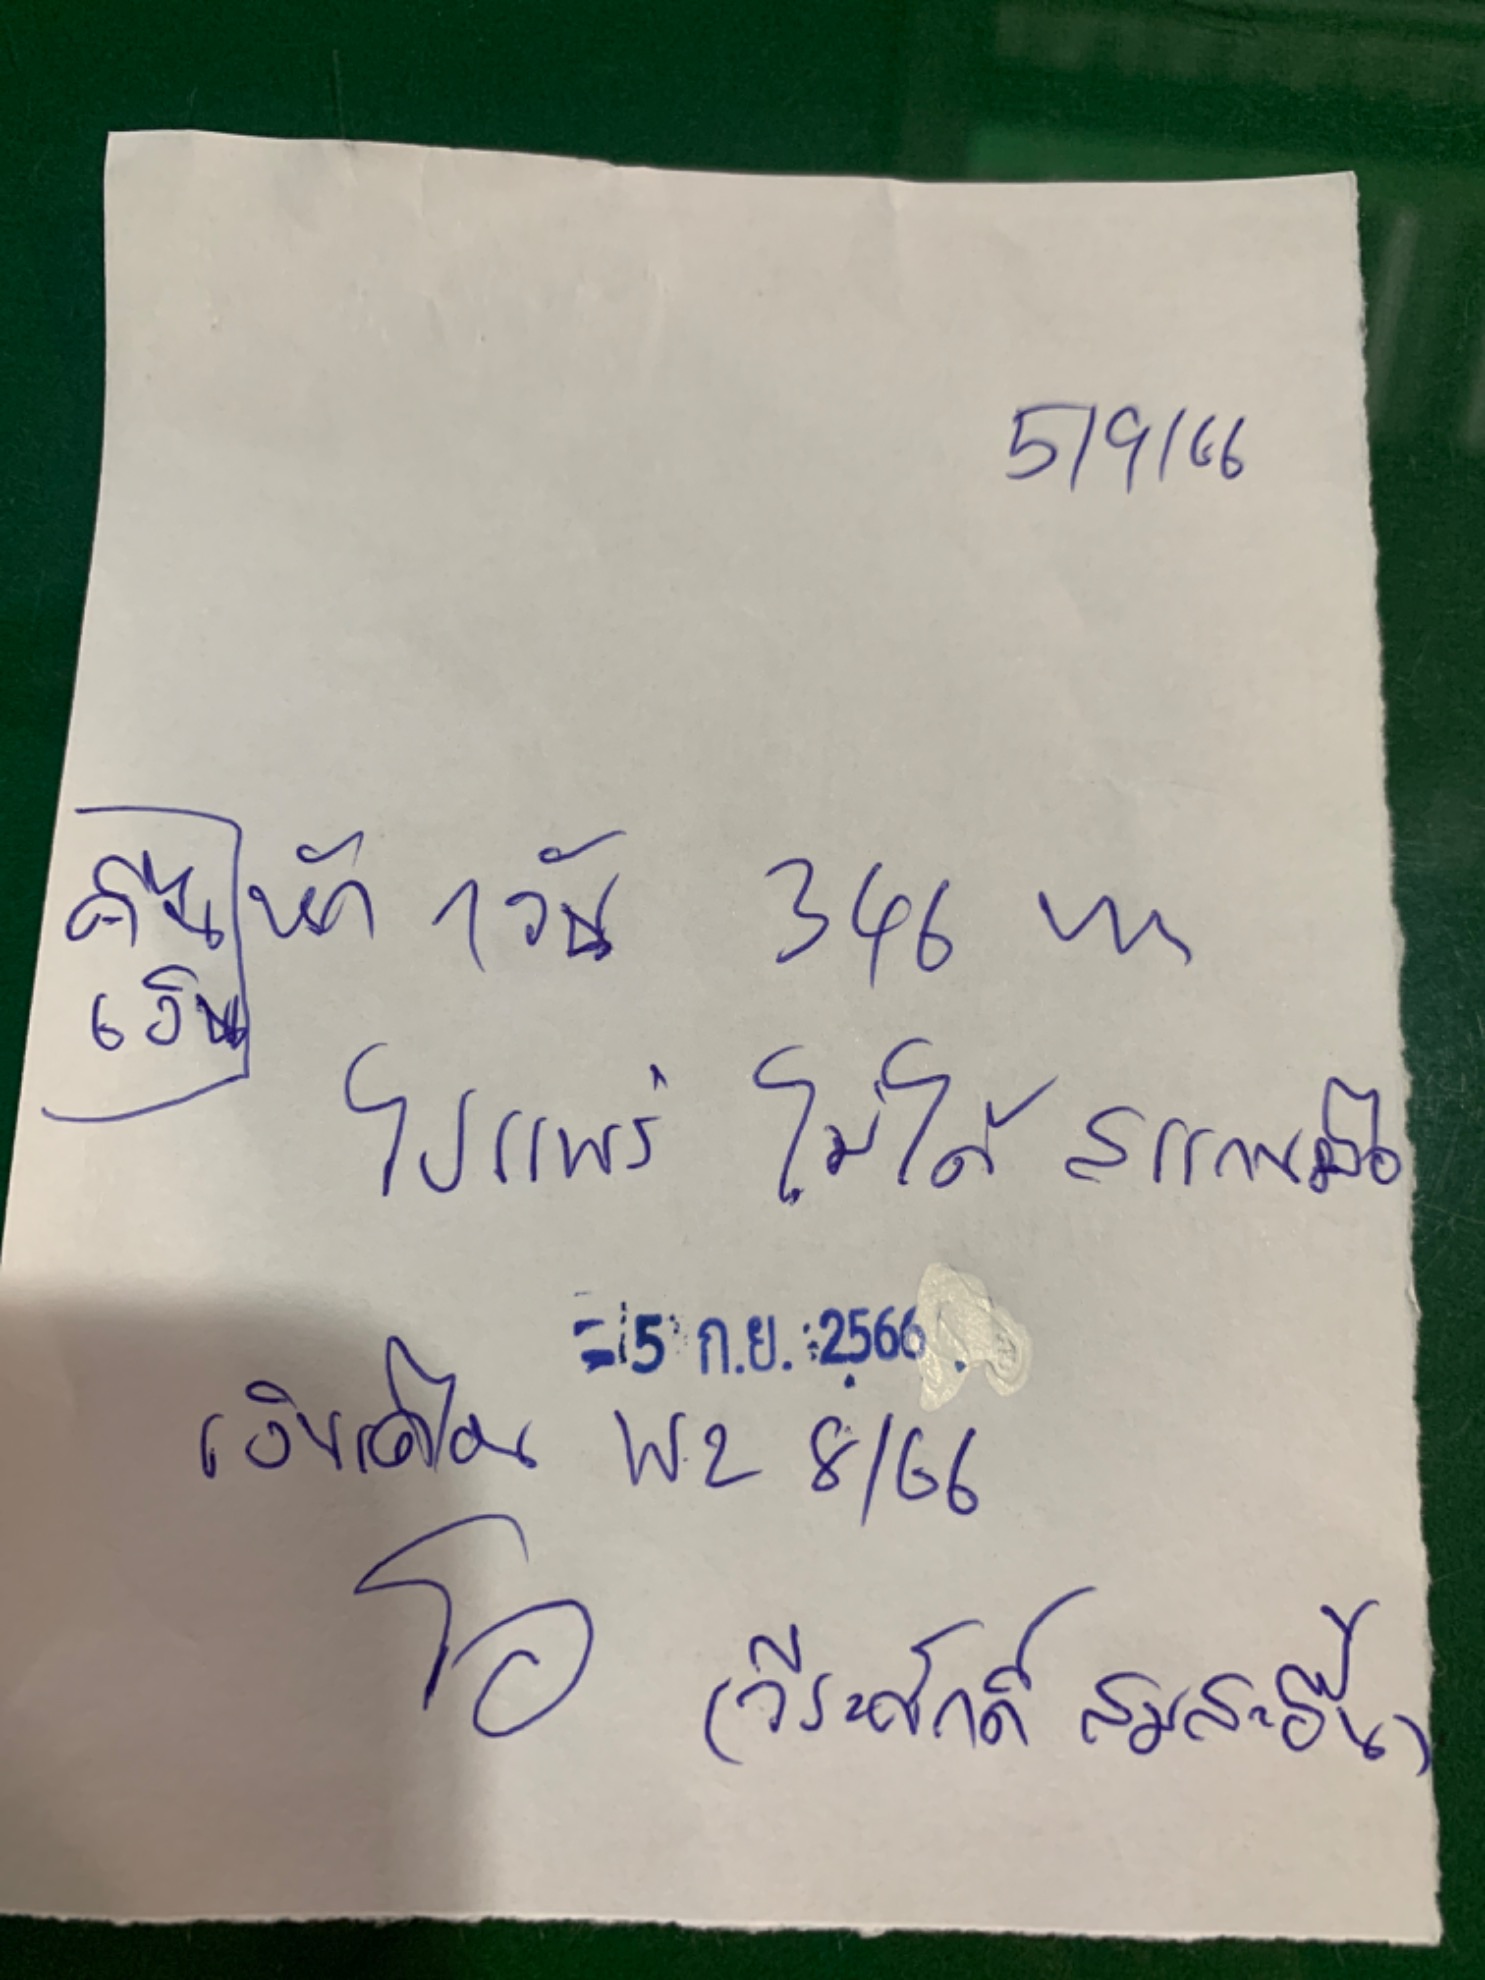 5/9/66
คืน หัก 1 วัน 346 บาท
เงิน
ไปแพร่ ไม่ได้ สแกนมือ
5 ก.ย. 2566
เงินเดือน พ2 8/66
โอ
(วีระศักดิ์ สมสะอื้น)